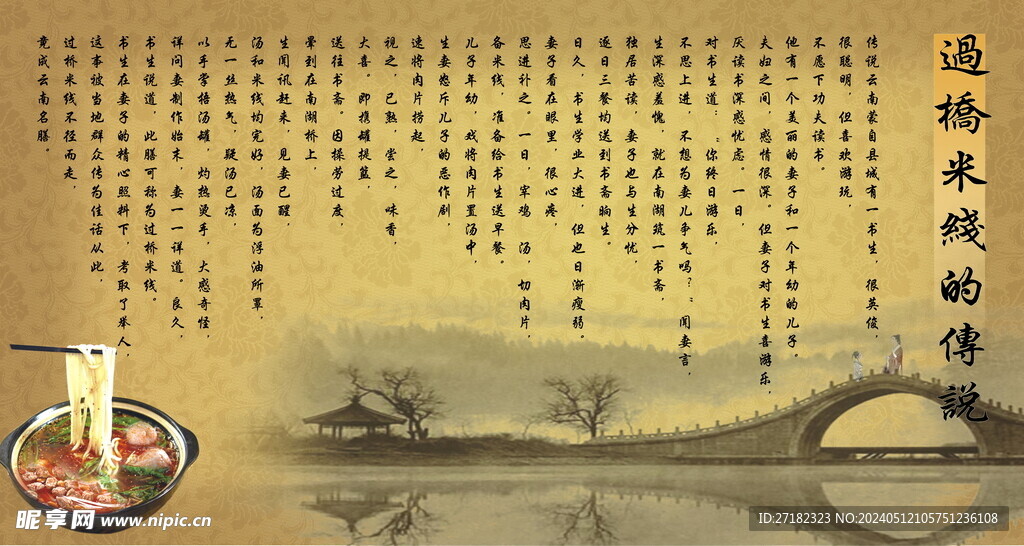 過橋米綫的傳説
传说云南蒙自县城有一书生，很英俊，
很聪明，但喜欢游玩，
不愿下功夫读书。
他有一个美丽的妻子和一个年幼的儿子。
夫妇之间，感情很深。但妻子对书生喜游乐，
厌读书深感忧虑。一日，
对书生道：“你终日游乐，
不思上进，不想为妻儿争气吗？”闻妻言，
生深感羞愧，就在南湖筑一书斋，
独居苦读，妻子也与生分忧，
逐日三餐均送到书斋晌生。
日久，书生学业大进，但也日渐瘦弱。
妻子看在眼里，很心疼，
思进补之。一日，宰鸡 汤，切肉片，
备米线，准备给书生送早餐。
儿子年幼，戏将肉片置汤中，
生妻怒斥儿子的恶作剧，
速将肉片捞起，
视之，已熟，尝之，味香，
大喜。即携罐提篮，
送往书斋。因操劳过度，
晕到在南湖桥上，
生闻讯赶来，见妻已醒，
汤和米线均完好，汤面为浮油所罩，
无一丝热气，疑汤已凉，
以手掌捂汤罐，灼热烫手，大感奇怪，
详问妻制作始末，妻一一详道。良久，
书生说道，此膳可称为过桥米线。
书生在妻子的精心照料下，考取了举人，
这事被当地群众传为佳话从此，
过桥米线不径而走，
竟成云南名膳。
昵享网 www.nipic.cn
ID:27182323 NO:20240512105751236108